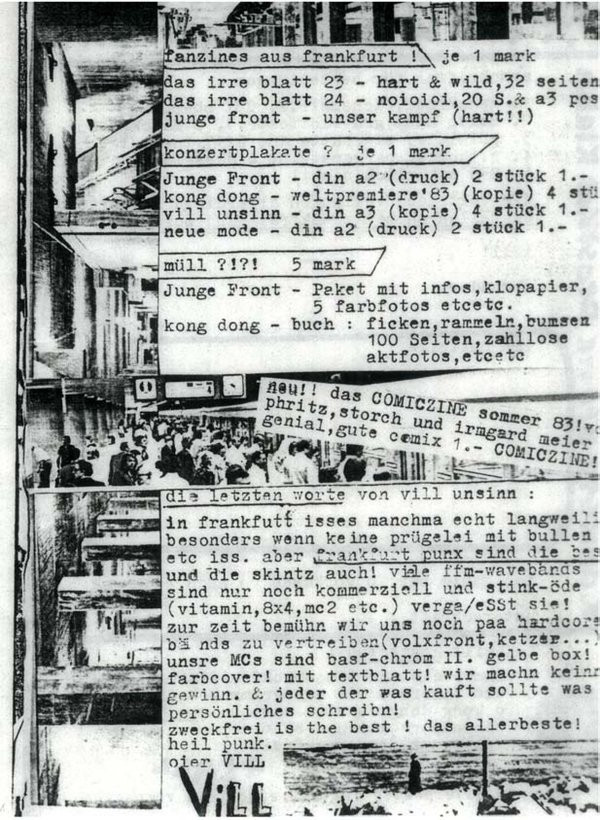 fanzines aus frankfurt ! je 1 mark
das irre blatt 23 - hart & wild,32 seiten
das irre blatt 24 - noioioi,20 S.& a3 pos
junge front - unser kampf (hart!!)
konzertplakate ? je 1 mark
Junge Front - din a2 (druck) 2 stück 1.-
kong dong - weltpremiere'83 (kopie) 4 stü
vill unsinn - din a3 (kopie) 4 stück 1.-
neue mode - din a2 (druck) 2 stück 1.-
müll ?!?! 5 mark
Junge Front - Paket mit infos,klopapier,
5 farbfotos etcetc.
kong dong - buch : ficken,rammeln,bumsen
100 Seiten,zahllose
aktfotos,etcetc
neu!! das COMICZINE sommer 83!v
phritz,storch und irmgard meier
genial,gute comix 1.- COMICZINE!
die letzten worte von vill unsinn :
in frankfutt isses manchma echt langweili
besonders wenn keine prügelei mit bullen
etc iss. aber frankfurt punx sind die bes
und die skintz auch! viele ffm-wavebands
sind nur noch kommerziell und stink-öde
(vitamin,8x4,mc2 etc.) verga/eSSt sie!
zur zeit bemühn wir uns noch paa hardcore
bä nds zu vertreiben(volxfront,ketzer...)
unsre MCs sind basf-chrom II. gelbe box!
farbcover! mit textblatt! wir machn keinn
gewinn. & jeder der was kauft sollte was
persönliches schreibn!
zweckfrei is the best ! das allerbeste!
heil punk.
oier VILL
ViLL